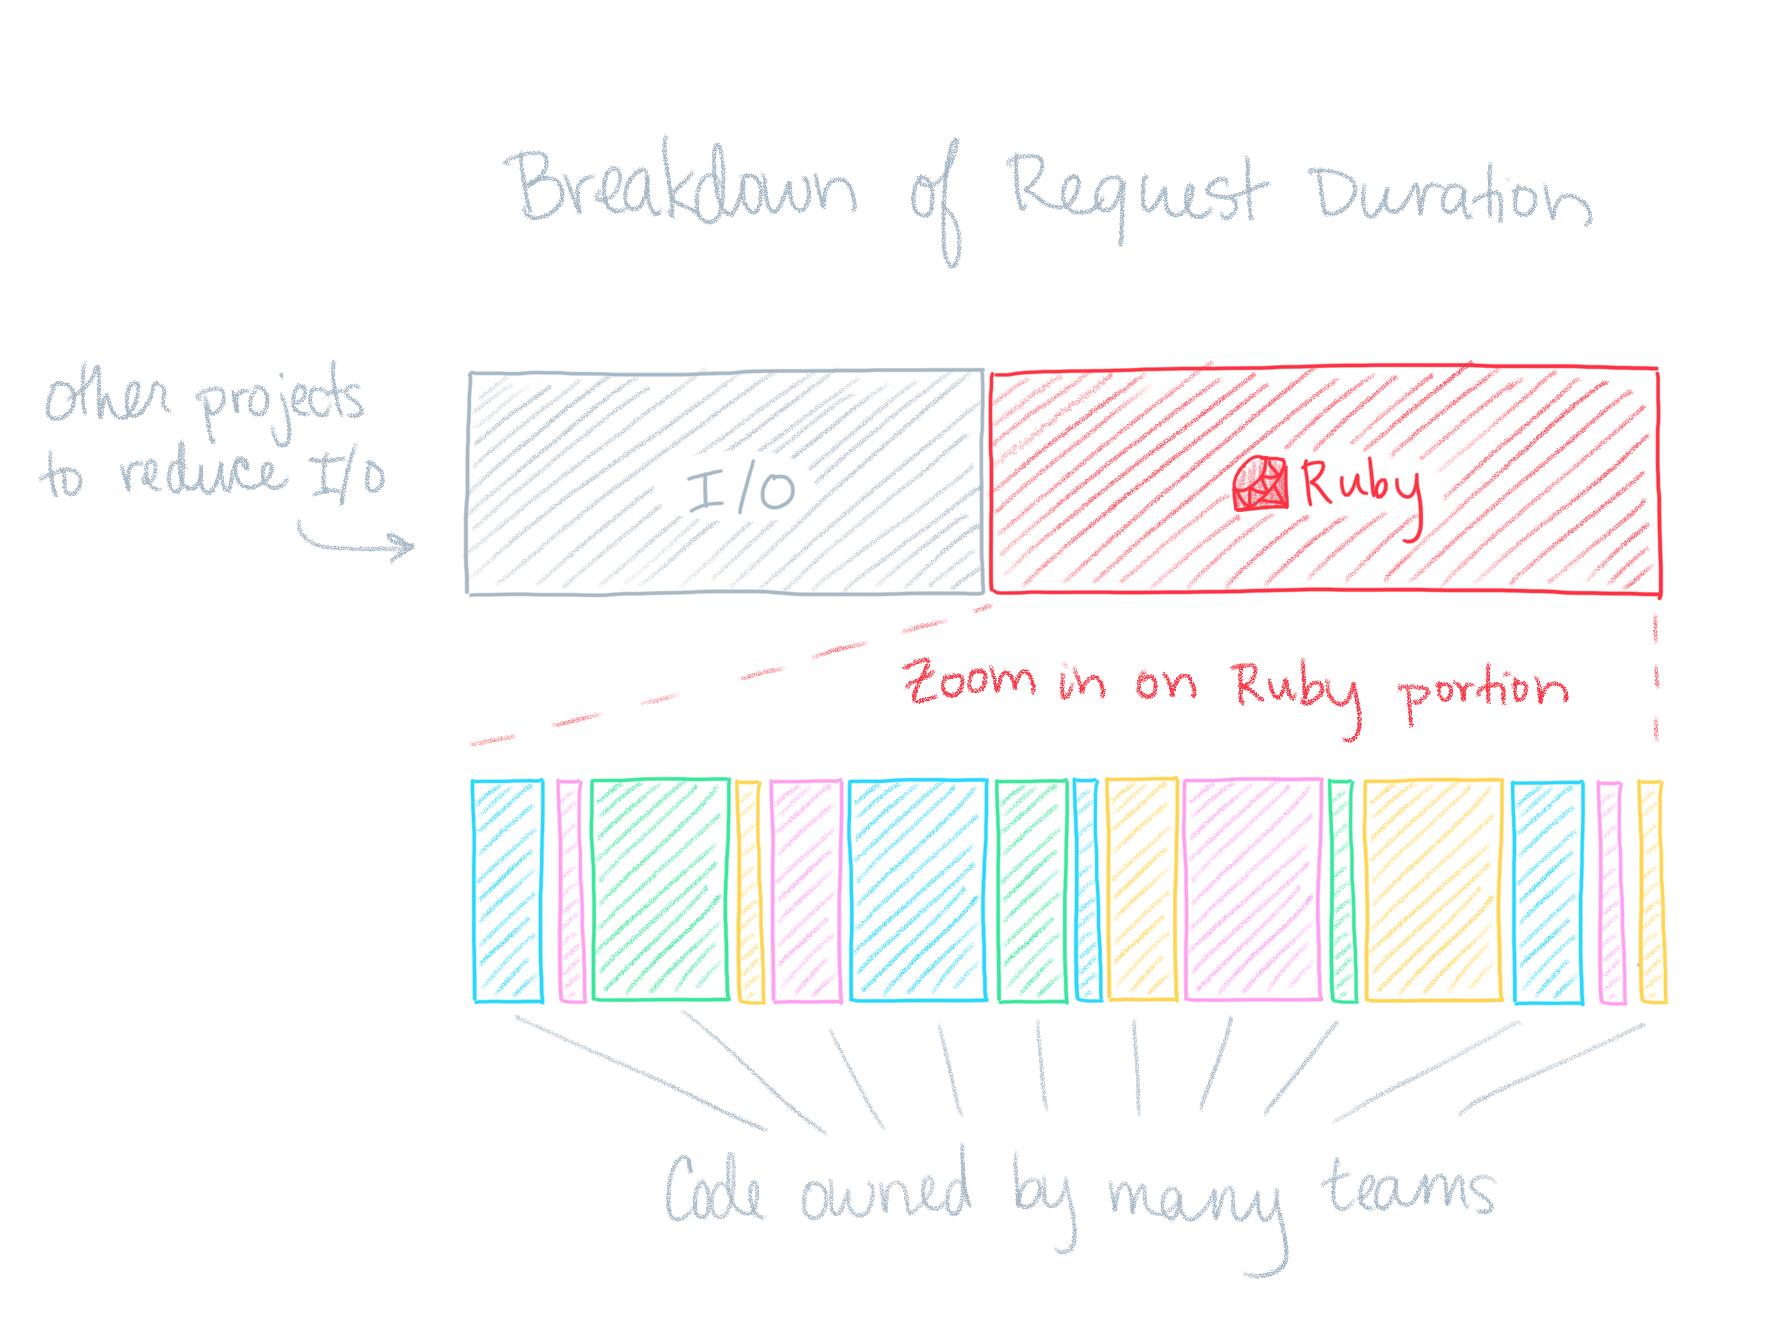 Breakdown of Request Duration
other projects
to reduce I/O
I/O
Ruby
Zoom in on Ruby portion
Code owned by many teams